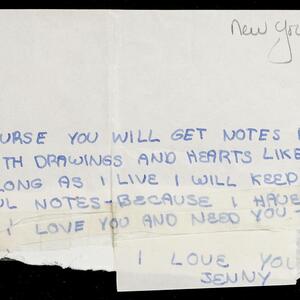 New Yor
URSE YOU WILL GET NOTES
TH DRAWINGS AND HEARTS LIKE
LONG AS I LIVE I WILL KEEP
UL NOTES - BECAUSE I HAVE
I LOVE YOU AND NEED YOU -
I LOVE YOU
JENNY